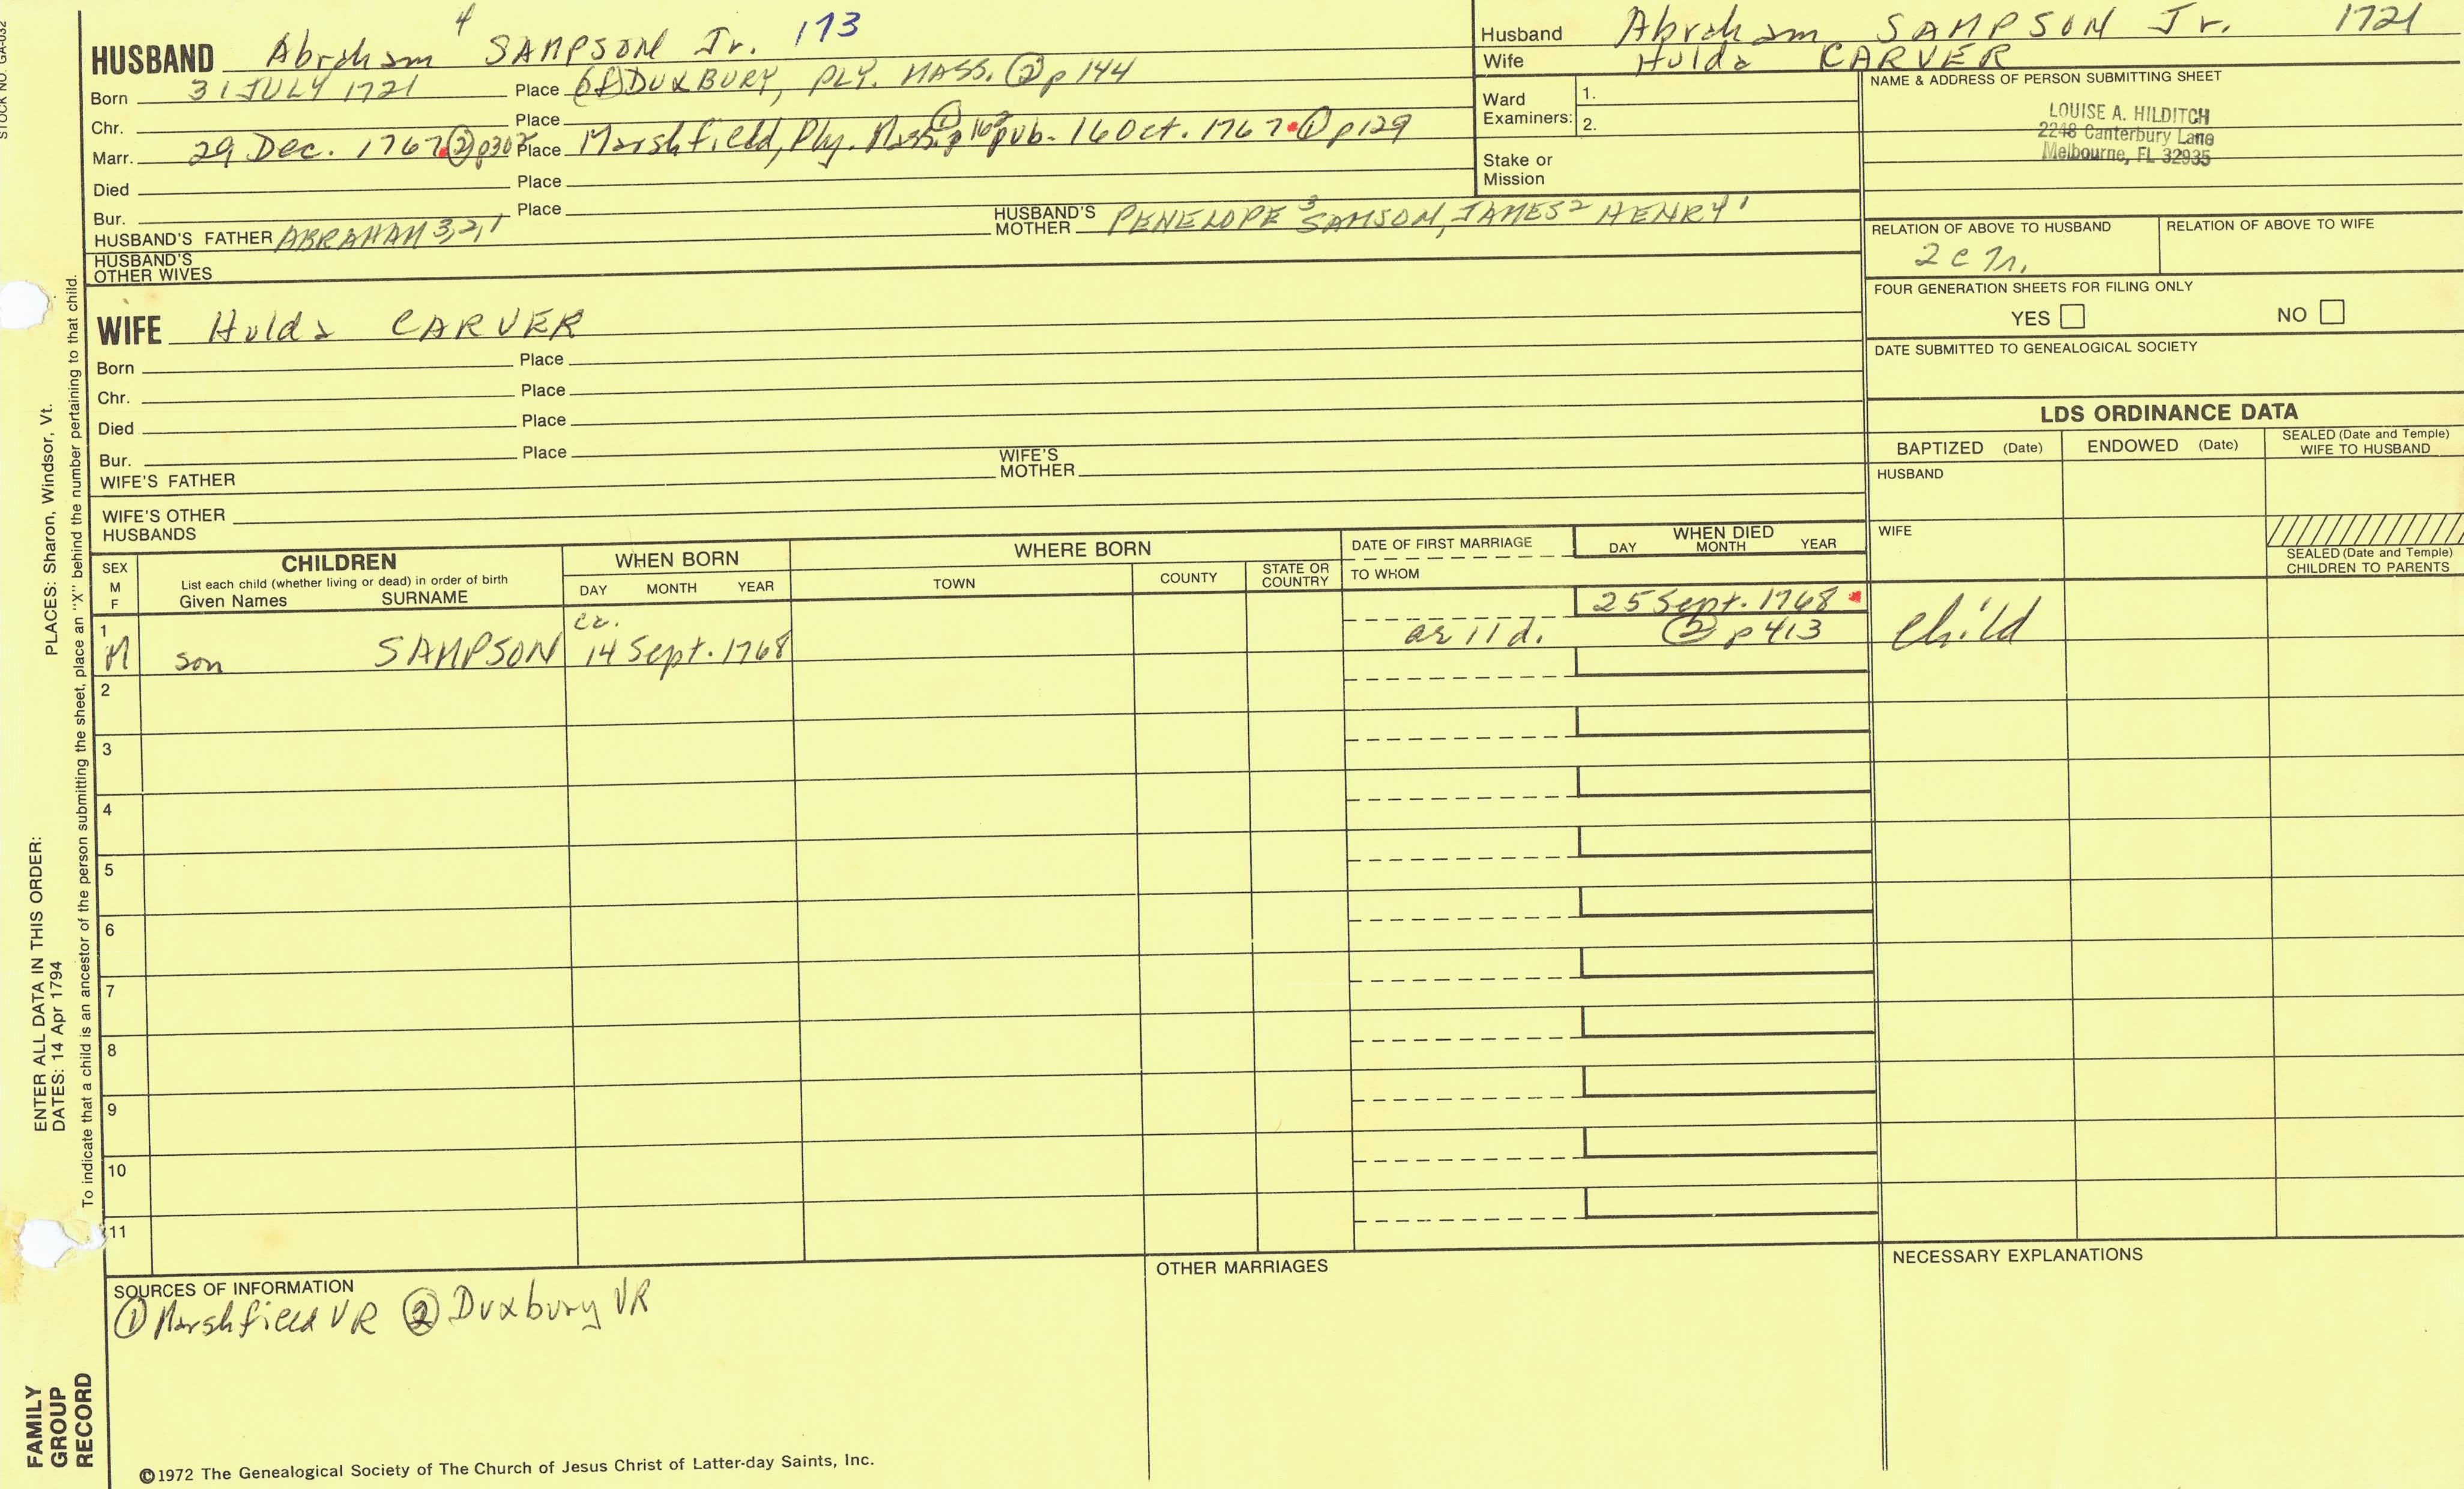 STOCK NO. GA-032
HUSBAND Abraham 4 SAMPSON Jr. 173
Born 31 JULY 1721 Place (of) DUXBURY, PLY. MASS. ② p 144
Chr. Place
Marr. 29 Dec. 1767 ② p302 Place Marshfield, Ply. Mass. ① p 162 pub. 16 Oct. 1767 ① p129
Died Place
Bur. Place
HUSBAND'S FATHER ABRAHAM 3,2,1 HUSBAND'S MOTHER PENELOPE 3 SAMSON, JAMES 2 HENRY 1
HUSBAND'S OTHER WIVES
Husband Abraham SAMPSON Jr. 1721
Wife Hulda CARVER
Ward Examiners: 1.
2.
Stake or Mission
NAME & ADDRESS OF PERSON SUBMITTING SHEET
LOUISE A. HILDITCH
2248 Canterbury Lane
Melbourne, FL 32935
RELATION OF ABOVE TO HUSBAND RELATION OF ABOVE TO WIFE
2 c
FOUR GENERATION SHEETS FOR FILING ONLY
YES NO
DATE SUBMITTED TO GENEALOGICAL SOCIETY
WIFE Hulda CARVER
Born Place
Chr. Place
Died Place
Bur. Place
WIFE'S FATHER WIFE'S MOTHER
WIFE'S OTHER HUSBANDS
LDS ORDINANCE DATA
BAPTIZED (Date) ENDOWED (Date) SEALED (Date and Temple) WIFE TO HUSBAND
HUSBAND
WIFE
SEALED (Date and Temple) CHILDREN TO PARENTS
SEX M F
CHILDREN
List each child (whether living or dead) in order of birth
Given Names SURNAME
WHEN BORN
DAY MONTH YEAR
WHERE BORN
TOWN COUNTY STATE OR COUNTRY
DATE OF FIRST MARRIAGE
TO WHOM
WHEN DIED
DAY MONTH YEAR
1 M son SAMPSON ca. 14 Sept. 1768 ae 11 d. 25 Sept. 1768 ② p 413 child
2
3
4
5
6
7
8
9
10
11
SOURCES OF INFORMATION
① Marshfield VR ② Duxbury VR
OTHER MARRIAGES
NECESSARY EXPLANATIONS
©1972 The Genealogical Society of The Church of Jesus Christ of Latter-day Saints, Inc.
FAMILY GROUP RECORD
ENTER ALL DATA IN THIS ORDER:
DATES: 14 Apr 1794
PLACES: Sharon, Windsor, Vt.
To indicate that a child is an ancestor of the person submitting the sheet, place an "X" behind the number pertaining to that child.